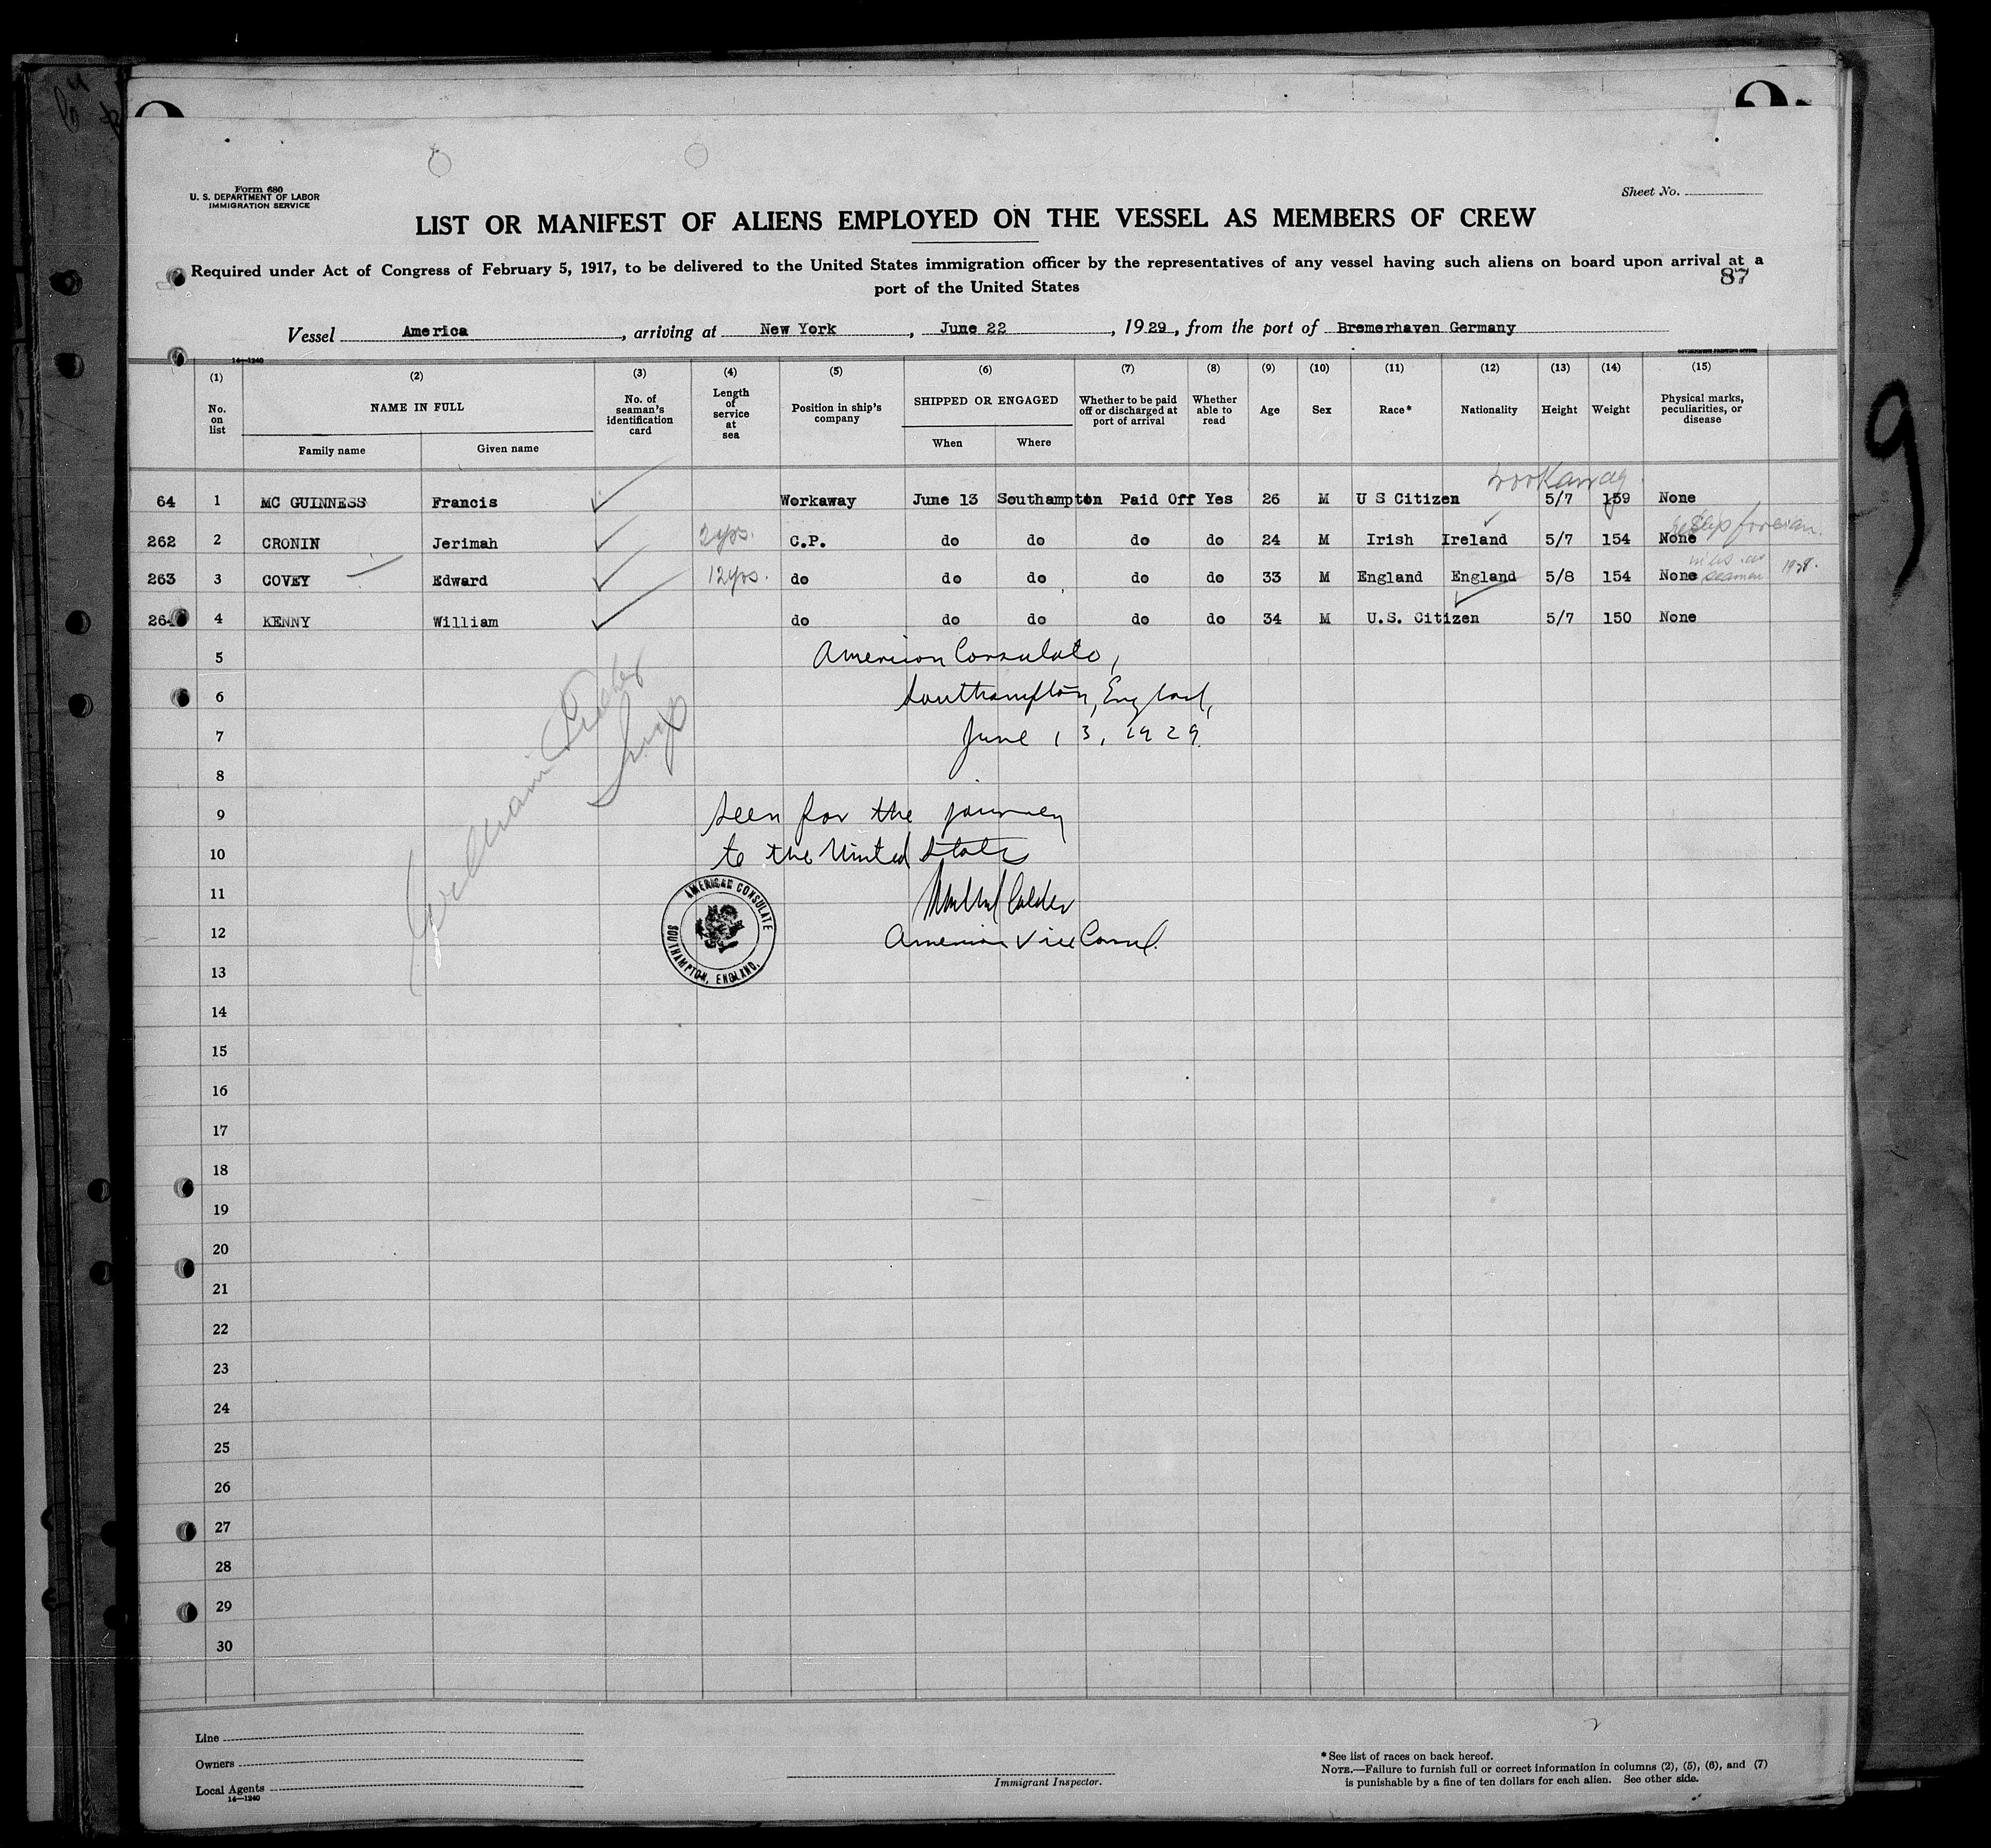 Form 680
U. S. DEPARTMENT OF LABOR
IMMIGRATION SERVICE
Sheet No.
LIST OR MANIFEST OF ALIENS EMPLOYED ON THE VESSEL AS MEMBERS OF CREW
Required under Act of Congress of February 5, 1917, to be delivered to the United States immigration officer by the representatives of any vessel having such aliens on board upon arrival at a
port of the United States
87
Vessel America, arriving at New York, June 22, 1929, from the port of Bremerhaven Germany
14—1240 GOVERNMENT PRINTING OFFICE
(1) (2) (3) (4) (5) (6) (7) (8) (9) (10) (11) (12) (13) (14) (15)
No. on list NAME IN FULL No. of seaman's identification card Length of service at sea Position in ship's company SHIPPED OR ENGAGED Whether to be paid off or discharged at port of arrival Whether able to read Age Sex Race* Nationality Height Weight Physical marks, peculiarities, or disease
Family name Given name When Where
workaway
64 1 MC GUINNESS Francis Workaway June 13 Southampton Paid Off Yes 26 M U S Citizen 5/7 159 None
262 2 CRONIN Jerimah 2yrs. C.P. do do do do 24 M Irish Ireland 5/7 154 None
263 3 COVEY Edward 12yrs. do do do do do 33 M England England 5/8 154 None seaman 1928.
264 4 KENNY William do do do do do 34 M U.S. Citizen 5/7 150 None
5 American Consulate,
6 Southampton, England,
7 June 13, 1929.
8
9 Seen for the journey
10 to the United States
11 Calder
12 American Vice Consul.
AMERICAN CONSULATE
SOUTHAMPTON, ENGLAND.
William
13
14
15
16
17
18
19
20
21
22
23
24
25
26
27
28
29
30
9
Line
Owners
Local Agents
14—1240
Immigrant Inspector.
*See list of races on back hereof.
NOTE.—Failure to furnish full or correct information in columns (2), (5), (6), and (7)
is punishable by a fine of ten dollars for each alien. See other side.